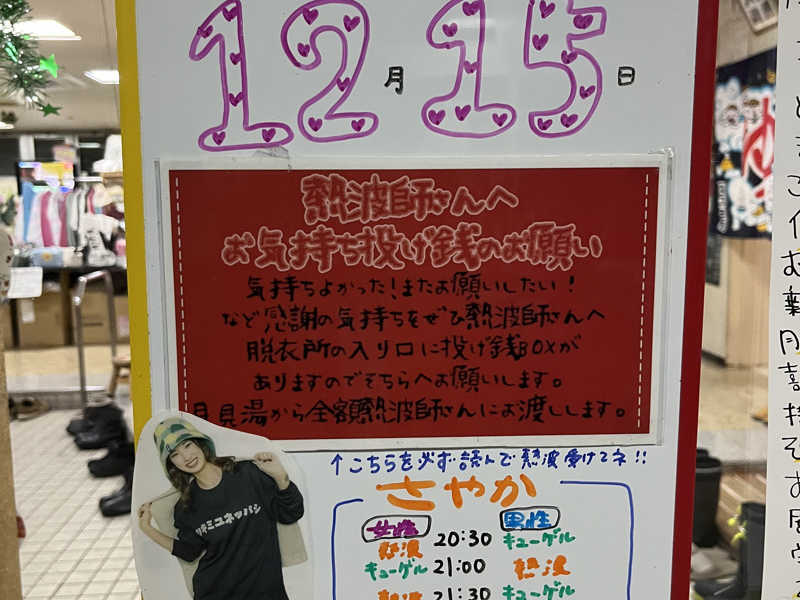 12月15日
熱波師さんへ
お気持ち投げ銭のお願い
気持ちよかった!またお願いしたい!
など感謝の気持ちをぜひ熱波師さんへ
脱衣所の入り口に投げ銭BOXが
ありますのでそちらへお願いします。
月見湯から全額熱波師さんにお渡しします。
↑こちらを必ず読んで熱波受けてネ!!
さやか
女性 男性
熱波 20:30 キューゲル
キューゲル 21:00 熱波
熱波 21:30 キューゲル